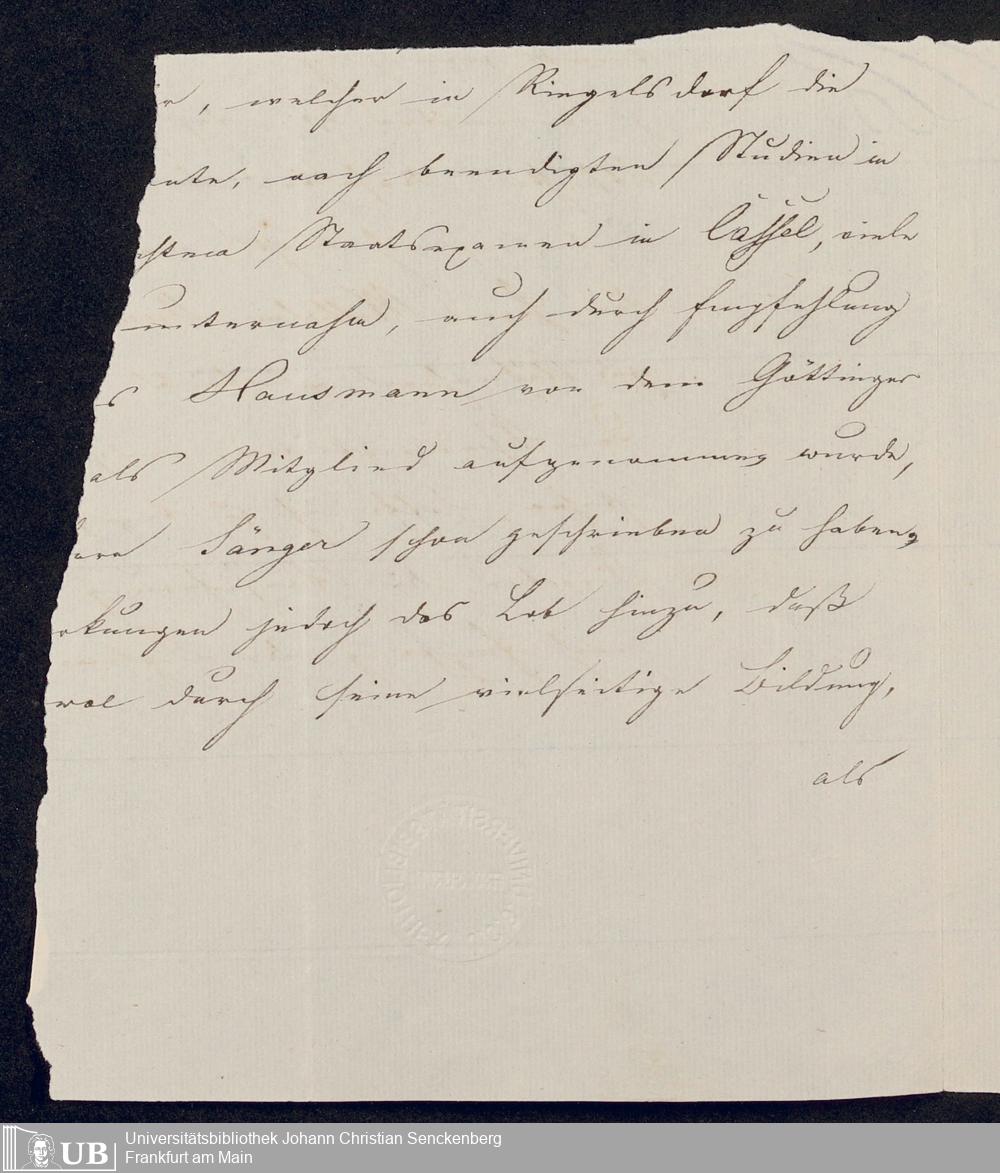 r, welcher in Riegelsdorf die
nte, nach beendigten Studien in
hsten Staatsexamen in Cassel, viele
unternahm, auch durch Empfehlung
s Hausmann von dem Göttinger
als Mitglied aufgenommen wurde,
ore Sänger schon geschrieben zu haben,
rkungen jedoch das Lob hinzu, daß
wol durch seine vielseitige Bildung,
als
UB
Universitätsbibliothek Johann Christian Senckenberg
Frankfurt am Main